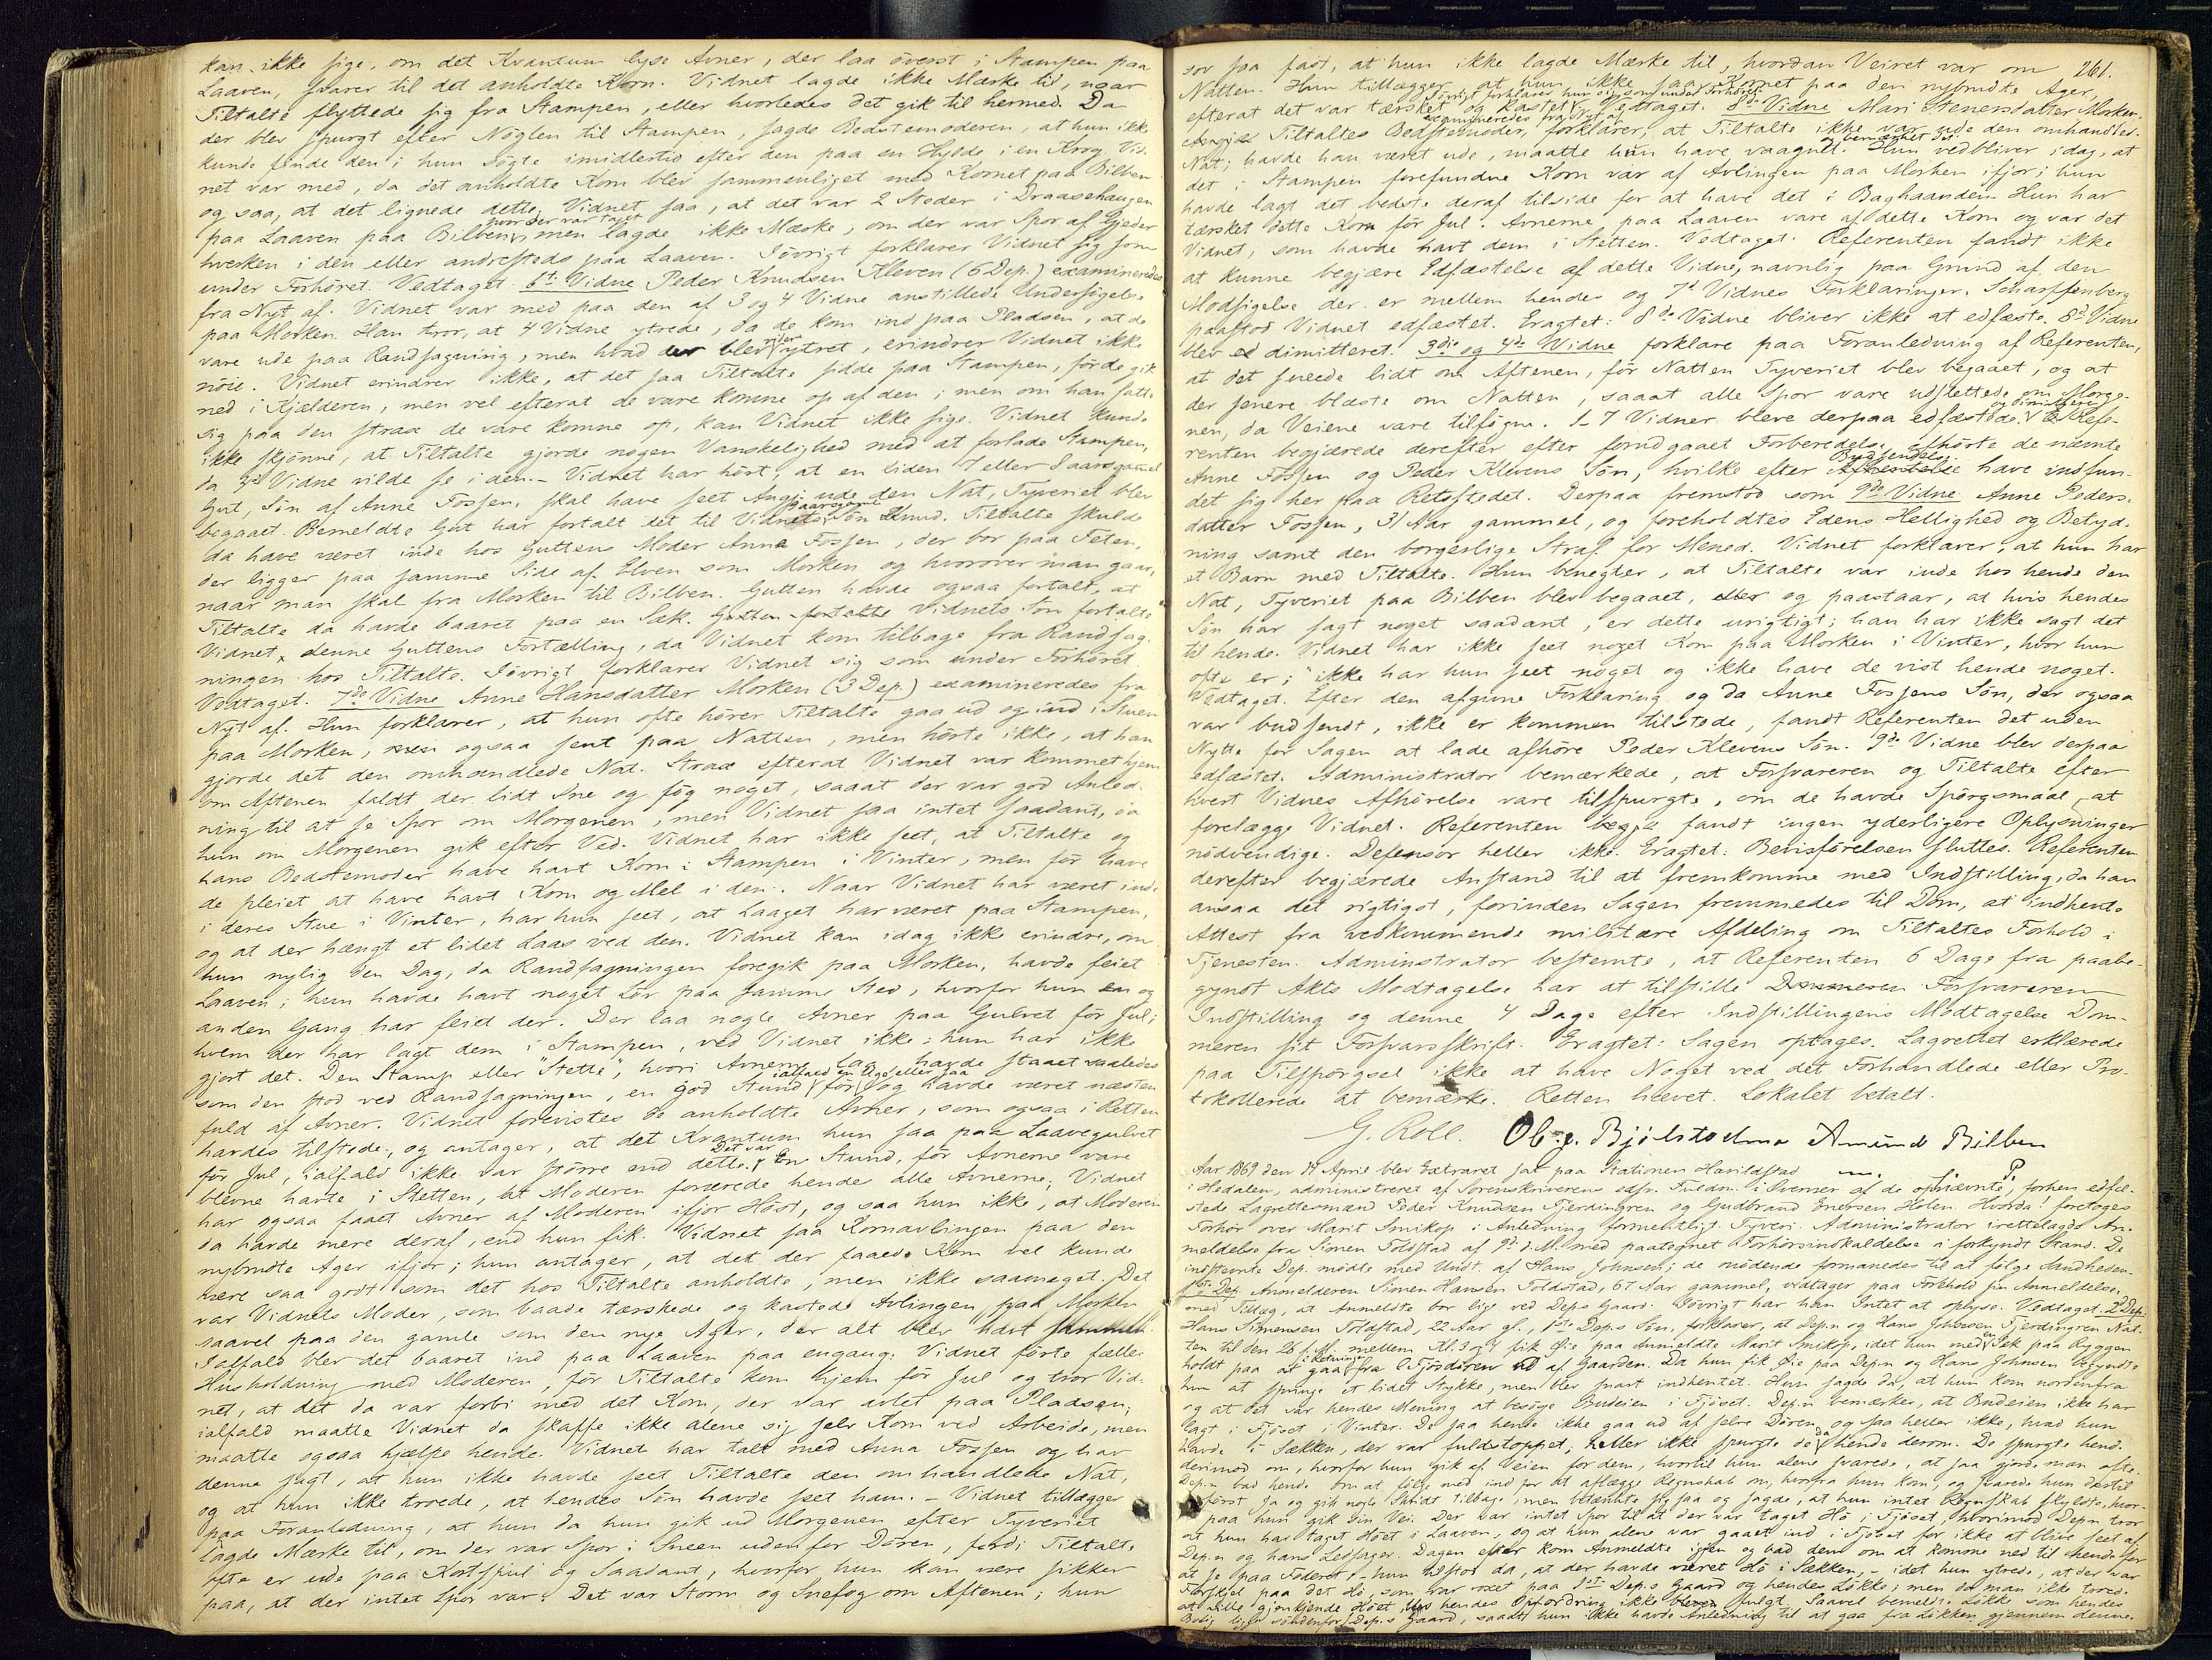 kan ikke sige, om det Kvantum lyse Avner, der laa överst i Stampen paa
Laaven, svarer til det anholdte Korn. Vidnet lagde ikke Mærke til, naar
Tiltalte flyttede sig fra Stampen, eller hvorledes det gik til hermed. Da
der blev spurgt efter Nöglen til Stampen, sagde Bedstemoderen, at hun ikke
kunde finde den; hun sögte imidlertid efter den paa en Hylde i en Krog. Vid-
net var med, da det anholdte Korn blev sammenliget med Kornet paa Bilben
og saa, at det lignede dette. Vidnet saa, at det var 2 Steder i Draasehaugen
paa Laaven paa Bilben, hvor der var taget, men lagde ikke Mærke, om der var Spor af
hverken i den eller andresteds paa Laaven. Iövrigt forklarer Vidnet sig som
under Forhöret. Vedtaget. 6te Vidne Peder Knudsen Kleven (6 Dep.) examineredes
fra Nyt af. Vidnet var med paa den af 3 og 4 Vidne anstillede Undersögelse
paa Morken. Han tror, at 4 Vidne ytrede, da de kom ind paa Pladsen, at de
vare ude paa Randsagning, men hvad der blev videre ytret, erindrer Vidnet ikke
nöie. Vidnet erindrer ikke, at det saa Tiltalte sidde paa Stampen, för de gik
ned i Kjælderen, men vel efterat de vare komne op af den; men om han satte
sig paa den strax de vare komne op, kan Vidnet ikke sige. Vidnet kunde
ikke skjönne, at Tiltalte gjorde nogen Vanskelighed med at forlade Stampen,
da 3de Vidne vilde se i den. - Vidnet har hört, at en liden 7 eller 8 aarsgammel
Gut, Sön af Anne Fossen, skal have seet Angj. ude den Nat, Tyveriet blev
begaaet. Bemeldte Gut har fortalt det til Vidnets Sön Knud. Tiltalte skulde
da have været inde hos Guttens Moder Anne Fossen, der bor paa Feten,
der ligger paa samme Side af Elven som Morken og hvorover man gaar,
naar man skal fra Morken til Bilben. Gutten havde ogsaa fortalt, at
Tiltalte da havde baaret paa en Sæk. Gutten fortalte Vidnets Sön fortalte
Vidnet denne Guttens Fortælling, da Vidnet kom tilbage fra Randsag-
ningen hos Tiltalte. Iövrigt forklarer Vidnet sig som under Forhöret.
Vedtaget. 7de Vidne Anne Hansdatter Morken (3 Dep.) examineredes fra
Nyt af. Hun forklarer, at hun ofte hörer Tiltalte gaa ud og ind i Stuen
paa Morken, men ogsaa sent paa Natten, men hörte ikke, at han
gjorde det den omhandlede Nat. Strax efterat Vidnet var kommet hjem
om Aftenen faldt der lidt Sne og fög noget, saaat der var god Anled-
ning til at se Spor om Morgenen, men Vidnet saa intet saadant, da
hun om Morgenen gik efter Ved. Vidnet har ikke seet, at Tiltalte og
hans Bedstemoder have havt Korn i Stampen i Vinter, men för have
de pleiet at have havt Korn og Mel i den. Naar Vidnet har været inde
i deres Stue i Vinter, har hun seet, at Laaget har været paa Stampen,
og at der hængt et lidet Laas ved den. Vidnet kan idag ikke erindre, om
hun nylig den Dag, da Randsagningen foregik paa Morken, havde feiet
Laaven; hun havde havt noget Löv paa samme Sted, hvorfor hun en og
anden Gang har feiet der. Der laa nogle Avner paa Gulvet för Jul;
hvem der har lagt dem i Stampen, ved Vidnet ikke; hun har ikke
gjort det. Den Stamp eller "Stette", hvori Avnerne laa, havde staaet saaledes
som den stod ved Randsagningen, en god Stund, ialfald en Uge eller saa för og havde været næsten
fuld af Avner. Vidnet forevistes de anholdte Avner, som ogsaa i Retten
havdes tilstede, og antager, at det Kvantum hun saa paa Laavegulvet
för Jul, ialfald ikke var större end dette. Det var en Stund, för Avnerne vare
blevne havte i Stetten, at Moderen forærede hende alle Avnerne; Vidnet
har ogsaa faaet Avner af Moderen ifjor Höst, og saa hun ikke, at Moderen
da havde mere deraf, end hun fik. Vidnet saa Kornavlingen paa den
nybrudte Ager ifjor; hun antager, at det der faaede Korn vel kunde
være saa godt som det hos Tiltalte anholdte, men ikke saameget. Det
var Vidnets Moder, som baade tærskede og kastede Avlingen paa Morken
saavel paa den gamle som den nye Ager, der alt blev havt sammen.
Ialfald blev det baaret ind paa Laaven paa engang. Vidnet förte fælles
Husholdning med Moderen, för Tiltalte kom hjem för Jul og tror Vid-
net, at det da var forbi med det Korn, der var avlet paa Pladsen;
ialfald maatte Vidnet da skaffe ikke alene sig selv Korn ved Arbeide, men
maatte ogsaa hjælpe hende. Vidnet har talt med Anna Fossen og har
denne sagt, at hun ikke havde seet Tiltalte den omhandlede Nat,
og at hun ikke troede, at hendes Sön havde seet ham. - Vidnet tillægger
paa Foranledning, at hun da hun gik ud Morgenen efter Tyveriet
lagde Mærke til, om der var Spor i Sneen udenfor Dören, fordi Tiltalte
ofte er ude paa Kortspil og Saadant, hvorfor hun kan være sikker
paa, at der intet Spor var. Det var Storm og Snefog om Aftenen; hun
261.
sov saa fast, at hun ikke lagde Mærke til, hvordan Veiret var om
Natten. Hun tillægger, at hun ikke saa Kornet paa den nybrudte Ager,
efterat det var tærsket og kastet. Iövrigt forklarer hun sig som under Forhöret. Vedtaget. 8de Vidne Mari Stenersdatter Morken
Tiltaltes Bedstemoder, examineredes fra Nyt af, forklarer, at Tiltalte ikke var ude den omhandlede
Nat; havde han været ude, maatte hun have vaagnet og bemærket det. Hun vedbliver idag, at
det i Stampen forefundne Korn var af Avlingen paa Morken ifjor; hun
havde lagt det bedste deraf tilside for at have det i Baghaanden. Hun har
tærsket dette Korn för Jul. Avnerne paa Laaven vare af dette Korn og var det
Vidnet, som havde havt dem i Stetten. Vedtaget. Referenten fandt ikke
at kunne begjære Edfæstelse af dette Vidne, navnlig paa Grund af den
Modsigelse der er mellem hendes og 7de Vidnes Forklaringer. Scharffenberg
paastod Vidnet edfæstet. Eragtet: 8de Vidne bliver ikke at edfæste. 8de Vidne
blev dimitteret. 3die og 4de Vidne forklare paa Foranledning af Referenten,
at det sneede lidt om Aftenen, för Natten Tyveriet blev begaaet, og at
der senere blæste om Natten, saaat alle Spor vare udslettede om Morge-
nen, da Veiene vare tilfögne. 1-7 Vidner bleve derpaa edfæstede og dimitterede. Refe-
renten begjærede derefter efter forudgaaet Forberedelse afhörte de nævnte
Anne Fossen og Peder Klevens Sön, hvilke efter Budsendelse have indfun-
det sig her paa Retsstedet. Derpaa fremstod som 9de Vidne Anne Peders-
datter Fossen, 31 Aar gammel, og foreholdtes Edens Hellighed og Betyd-
ning samt den borgerlige Straf for Mened. Vidnet forklarer, at hun har
et Barn med Tiltalte. Hun benegter, at Tiltalte var inde hos hende den
Nat, Tyveriet paa Bilben blev begaaet, og paastaar, at hvis hendes
Sön har sagt noget saadant, er dette urigtigt; han har ikke sagt det
til hende. Vidnet har ikke seet noget Korn paa Morken i Vinter, hvor hun
ofte er; ikke har hun seet noget og ikke have de vist hende noget.
Vedtaget. Efter den afgivne Forklaring og da Anne Fossens Sön, der ogsaa
var budsendt, ikke er kommen tilstede, fandt Referenten det uden
Nytte for Sagen at lade afhöre Peder Klevens Sön. 9de Vidne blev derpaa
edfæstet. Administrator bemærkede, at Forsvareren og Tiltalte efter
hvert Vidnes Afhörelse vare tilspurgte, om de havde Spörgsmaal at
forelægge Vidnet. Referenten fandt ingen yderligere Oplysninger
nödvendige. Defensor heller ikke. Eragtet: Bevisförelsen sluttes. Referenten
derefter begjærede Anstand til at fremkomme med Indstilling, da han
ansaa det rigtigst, forinden Sagen fremmedes til Dom, at indhente
Attest fra vedkommende militære Afdeling om Tiltaltes Forhold i
Tjenesten. Adminstrator bestemte, at Referenten 6 Dage fra paabe-
gyndt Akts Modtagelse har at tilstille Forsvareren
Indstilling og denne 4 Dage efter Indstillingens Modtagelse Dom-
meren sit Forsvarsskrift. Eragtet: Sagen optages. Lagrettet erklærede
paa Tilspörgsel ikke at have Noget ved det Forhandlede eller Pro-
tokollerede at bemærke. Retten hævet. Lokalet betalt.
G. Roll. Ole J. Bjölstadmo Amund Bilben
Aar 1869 den 14 April blev Extraret sat paa Stationen Harildstad
i Hedalen, administreret af Sorenskriverens edsv. Fuldm. i Overvær af de opnævnte, forhen edfæ-
stede Lagrettesmænd Peder Knudsen Fjerdingren og Gudbrand Enersen Holen. Hvorda! foretoges
Forhör over Marit Snikop i Anledning formentligt Tyveri. Administrator irettelagde An-
meldelse fra Simen Toldstad af 9de d. M. med paategnet Forhörsindkaldelse i forkyndt Stand. De
indstevnte Dep. mödte med Undt. af Hans Johnsen; de mödende formanedes til at fölge Sandheden.
1ste Dep. Anmelderen Simen Hansen Toldstad, 67 Aar gammel, vedtager paa Forehold sin Anmeldelse,
med Tillæg, at Anmeldte bor lige ved Deps Gaard. Iövrigt har han Intet at oplyse. Vedtaget. 2 Dep.
Hans Simensen Toldstad, 22 Aar gl., 1ste Deps Sön, forklarer, at Dep.n og Hans Johnsen Fjerdingren Nat-
ten til den 26 f. M. mellem Kl. 3 og 4 fik Öie paa Anmeldte Marit Snikop, idet hun med en Sæk paa Ryggen
holdt paa at gaa i Retning fra Fjösdören ud af Gaarden. Da hun fik Öie paa Dep.n og Hans Johnsen begyndte
hun at springe et lidet Stykke, men blev snart indhentet. Hun sagde da, at hun kom nordenfra
og at det var hendes Mening at besöge Budeien i Fjöset. Dep.n bemærker, at Budeien ikke har
lagt i Fjöset i Vinter. De saa hende ikke gaa ud af selve Dören, og saa heller ikke, hvad hun
havde i Sækken, der var fuldstoppet; heller ikke spurgte de da hende derom. De spurgte hende
derimod om, hvorfor hun gik af Veien for dem, hvortil hun alene svarede, at saa gjorde man ofte.
Dep.n bad hende om at fölge med ind for at aflægge Regnskab om, hvorfra hun kom, og svarede hun dertil
först ja og gik nogle Skridt tilbage, men betænkte sig saa og sagde, at hun intet Regnskab skyldte, hvor-
paa hun gik sin Vei. Der var intet Spor til at der var taget Hö i Fjöset, hvorimod Dep.n tror
at hun har taget Höet i Laaven, og at hun alene var gaaet ind i Fjöset for ikke at blive seet af
Dep.n og hans Ledsager. Dagen efter kom Anmeldte igjen og bad dem om at komme ned til hende for
at se paa Foderet; - hun tilstod da, at der havde været Hö i Sækken, - idet hun ytrede, at der var
Forskjel paa det Hö, som var voxet paa 1ste Dep.s Gaard og hendes Lökke; men da man ikke troede
at ville gjenkjende Höet, blev hendes Opfordring ikke fulgt. Saavel bemeldte Lökke som hendes
Bolig ligger söndenfor Dep.s Gaard, saaat hun ikke havde Anledning til at gaa fra Lökken gjennem denne.